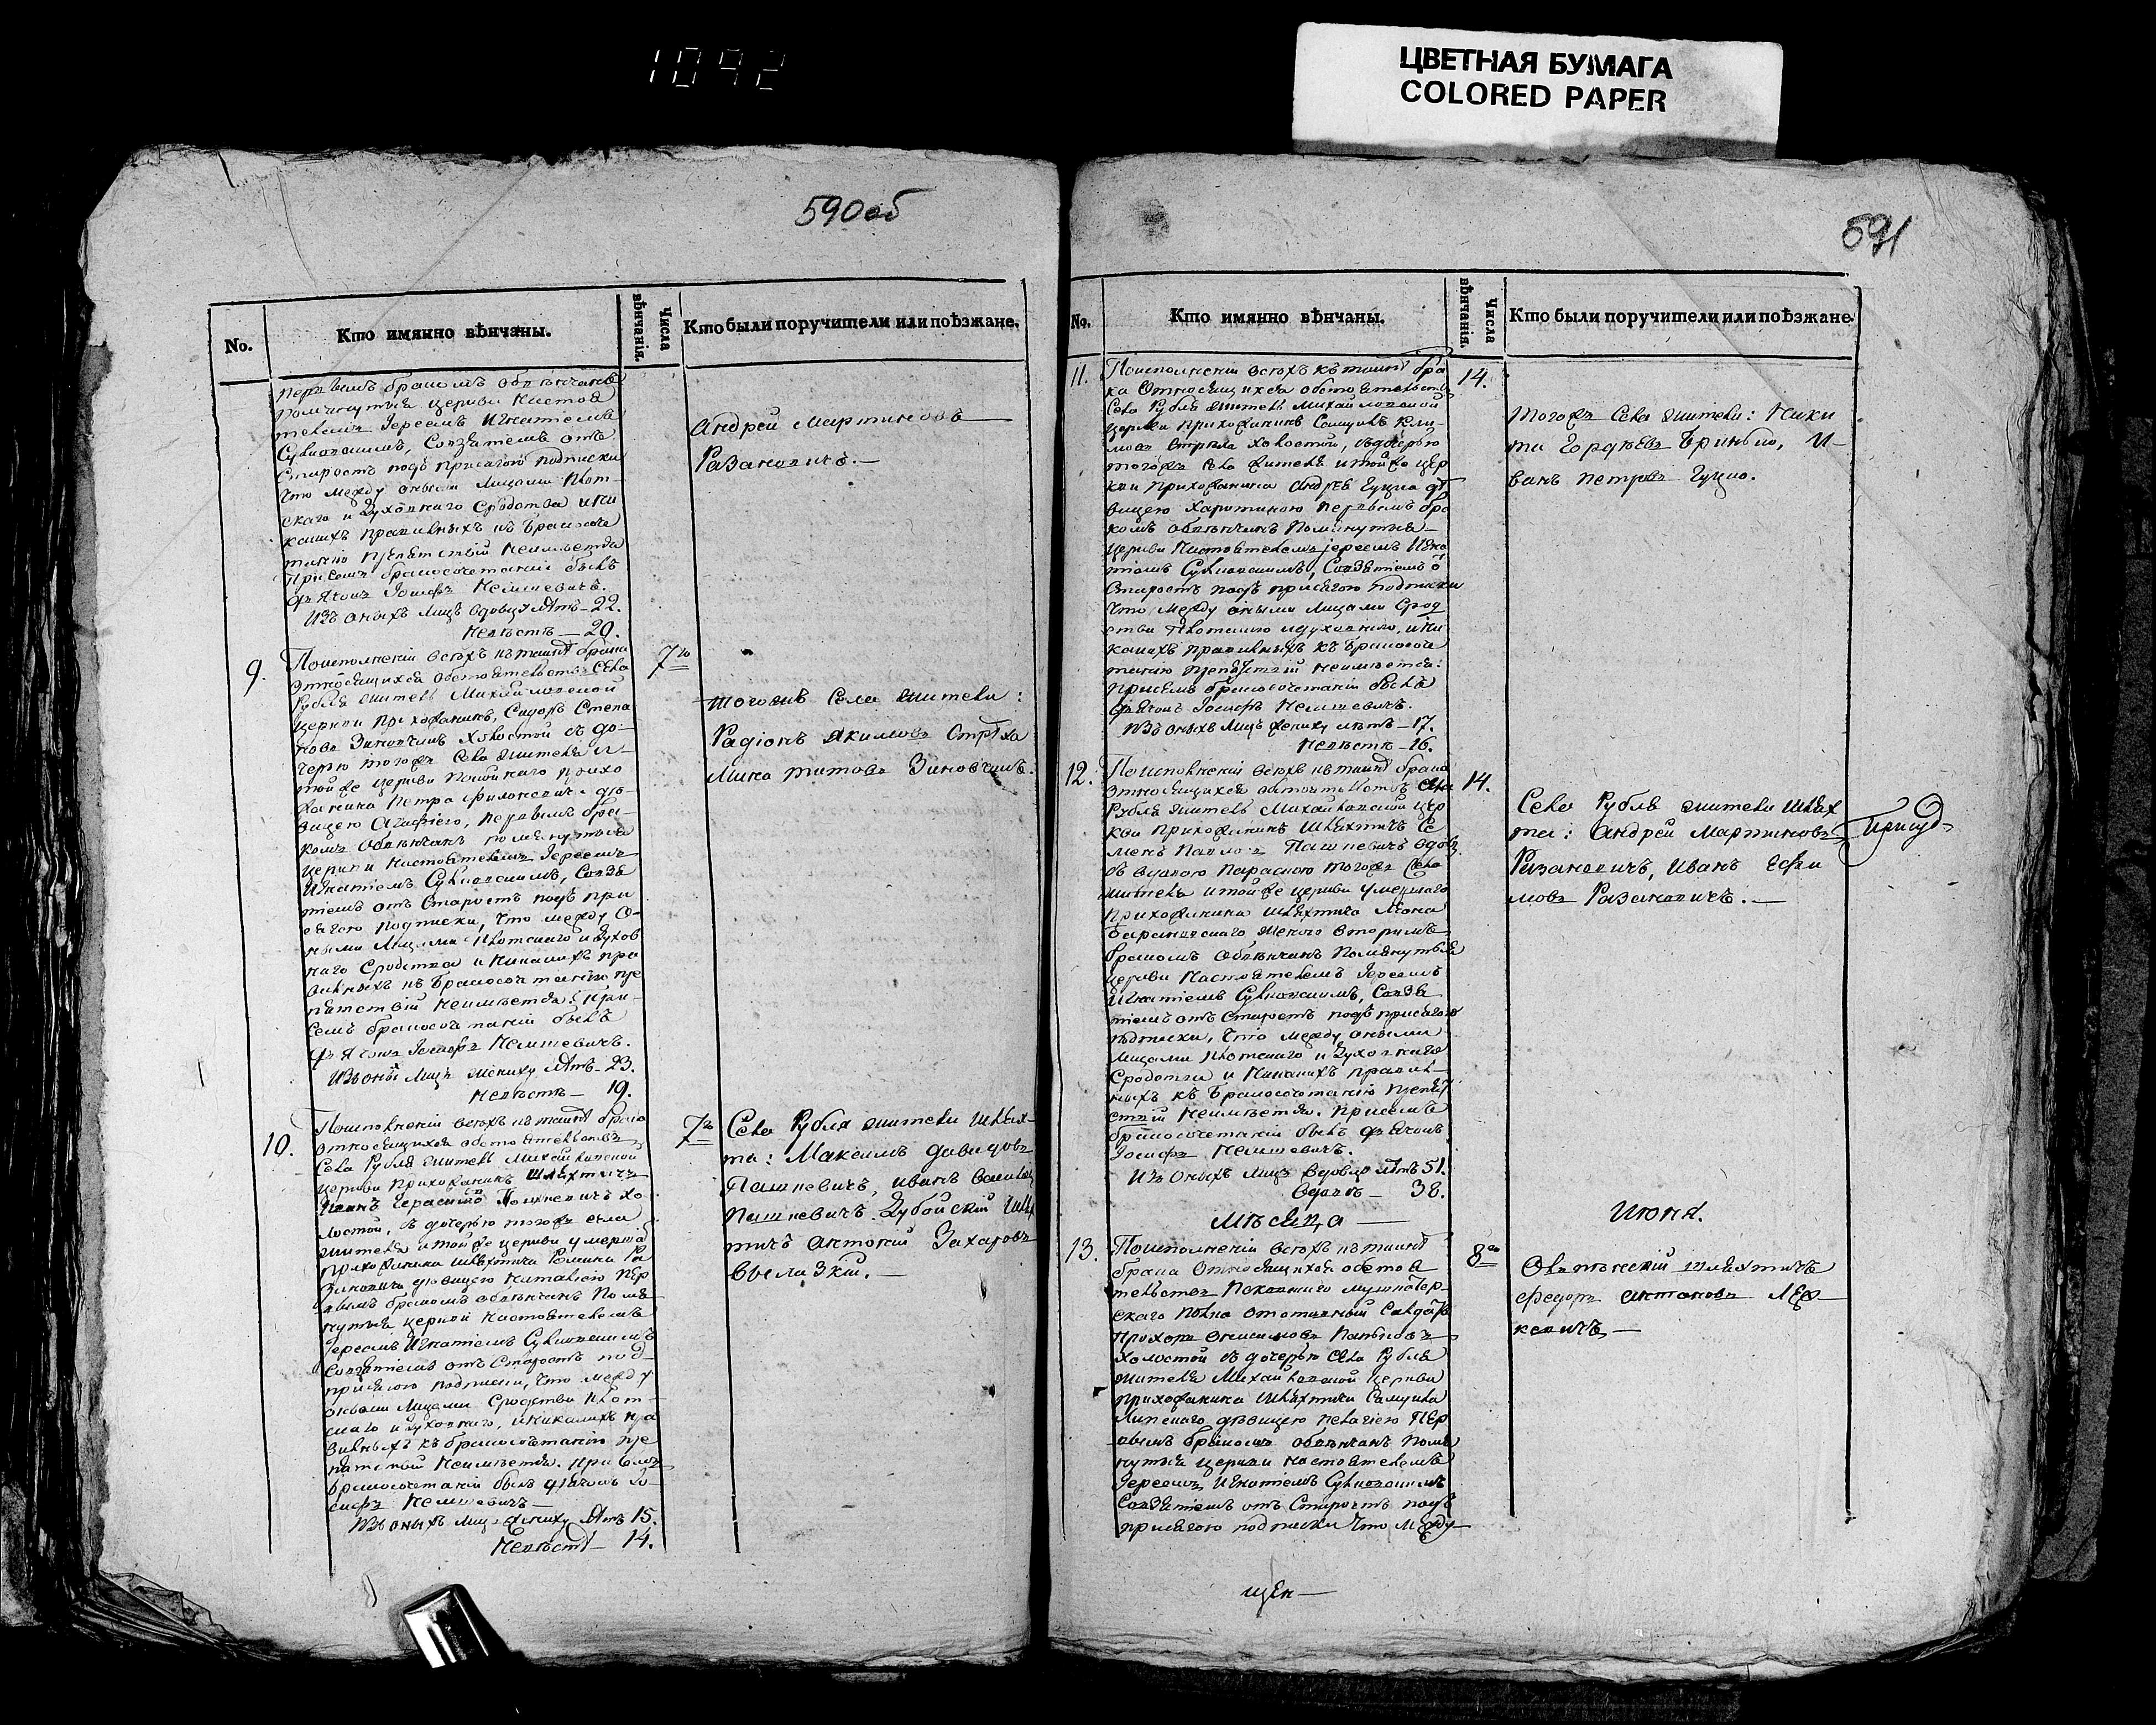 1092
ЦВЕТНАЯ БУМАГА
COLORED PAPER
590об
No.
Кто имянно вѣнчаны.
Числа вѣнчанія.
Кто были поручители или поѣзжане.
первымъ бракомъ обвѣнчанъ
помянутыя церкви настоя
телемъ Іереемъ Игнатіемъ
взятіемъ отъ
Старостъ подъ присягою подписки
что между оными лицами плот
скаго и духовнаго сродства и ни
какихъ правильныхъ къ бракосоче
танію препятствій неимѣется
присемъ бракосочетаніи былъ
дьячокъ Іосифъ
Изъ оныхъ лицъ вдовцу лѣтъ 22.
Невѣстѣ — 20.
Андрей Мартиновъ
Разановичъ.—
9.
Поисполненіи всѣхъ къ таинѣ брака
относящихся обстоятельствъ Села
Рубля житель Михайловской
церкви прихожанинъ, Сидоръ Степа
новъ Зиновчикъ холостой съ до
черью тогожъ села жителя и
той же церкви покойнаго прихо
жанина Петра дѣ
вицею Агафіею, первымъ бра
комъ обвѣнчанъ помянутыя
церкви настоятелемъ Іереемъ
Игнатіемъ
тіемъ отъ Старостъ подъ при
сягою подписки, что между о
ными лицами плотскаго и духов
наго сродства и никакихъ пра
вильныхъ къ бракосочетанію пре
пятствій неимѣется: при
семъ бракосочетаніи былъ
дьячокъ Іосифъ
Изъ оныхъ лицъ жениху лѣтъ 23.
Невѣстѣ — 19.
7го
тогожъ Села жители:
Радіонъ Якимовъ Стрѣха
Мина титовъ Зиновчикъ.
10.
Поисполненіи всѣхъ къ таинѣ брака
относящихся обстоятельствъ
Села Рубля житель Михайловской
церкви прихожанинъ шляхтичъ
Иванъ Герасимовъ Пашкевичъ хо
лостой, съ дочерью тогожъ села
жителя и той же церкви умершаго
прихожанина шляхтича Ра
зановича дѣвицею Наталіею пер
вымъ бракомъ обвѣнчанъ помя
нутыя церкви настоятелемъ
Іереемъ Игнатіемъ
взятіемъ отъ Старостъ под
присягою подписки, что между
оными лицами сродства плот
скаго и духовнаго, и никакихъ пра
вильныхъ къ бракосочетанію пре
пятствій неимѣется. при семъ
бракосочетаніи былъ дьячокъ Іо
сифъ
Изъ оныхъ лицъ жениху лѣтъ 15.
Невѣстѣ — 14.
7го
Села Рубля жители шлях
та: Максимъ давидовъ
Пашкевичъ, иванъ
Пашкевичъ. Дубойскій шлях
тичъ Антоній Захаровъ
591
No.
Кто имянно вѣнчаны.
Числа вѣнчанія.
Кто были поручители или поѣзжане.
11.
Поисполненіи всѣхъ къ таинѣ бра
ка относящихся обстоятельствъ
Села Рубля житель Михайловской
церкви прихожанинъ Самуилъ Кли
мовъ Стрѣха холостой, съ дочерью
тогожъ села жителя и той же цер
кви прихожанина Андрея Гуцка дѣ
вицею Харитиною первымъ бра
комъ обвѣнчанъ помянутыя
церкви настоятелемъ Іереемъ Игна
тіемъ взятіемъ о
Старостъ подъ присягою подписки
что между оными лицами срод
ства плотскаго и духовнаго, и ни
какихъ правильныхъ къ бракосоче
танію препятствій неимѣется:
присемъ бракосочетаніи былъ
дьячокъ Іосифъ
Изъ оныхъ лицъ жениху лѣтъ — 17.
Невѣстѣ — 16.
14.
тогожъ Села жители: Ники
та Гордѣевъ и
ванъ петровъ Гуцко.
12.
Поисполненіи всѣхъ къ таинѣ брака
относящихся обстоятельствъ села
Рубля житель Михайловской цер
кви прихожанинъ шляхтичъ Се
менъ Павловъ Пашкевичъ вдов
съ вдовою Параскою тогожъ села
жителя и той же церкви умершаго
прихожанина шляхтича
Барановскаго женою вторымъ
бракомъ обвѣнчанъ помянутыя
церкви настоятелемъ Іереемъ
Игнатіемъ
тіемъ отъ Старостъ подъ присягою
подписки, что между оными
лицами плотскаго и духовнаго
сродства и никакихъ правиль
ныхъ къ бракосочетанію препят
ствій неимѣется. присемъ
бракосочетаніи былъ дьячокъ
Іосифъ
Изъ оныхъ лицъ вдовцу лѣтъ 51.
вдовѣ — 38.
14.
Села Рубля жители шлях
та: Андрей Мартиновъ
Разановичъ, Иванъ Ефи
мовъ Разановичъ.—
Мѣсяца — Июня.
13.
Поисполненіи всѣхъ къ таинѣ
брака относящихся обстоя
тельствъ
скаго полка Салдатъ
Прохоръ Анисимовъ
холостой съ дочерью села Рубля
жителя Михайловской церкви
прихожанина шляхтича Самуила
Липскаго дѣвицею Пелагіею пер
вымъ бракомъ обвѣнчанъ помя
нутыя церкви настоятелемъ
Іереемъ Игнатіемъ
взятіемъ отъ Старостъ подъ
присягою подписки что между
8го
шляхтичъ
федоръ антоновъ
щен—